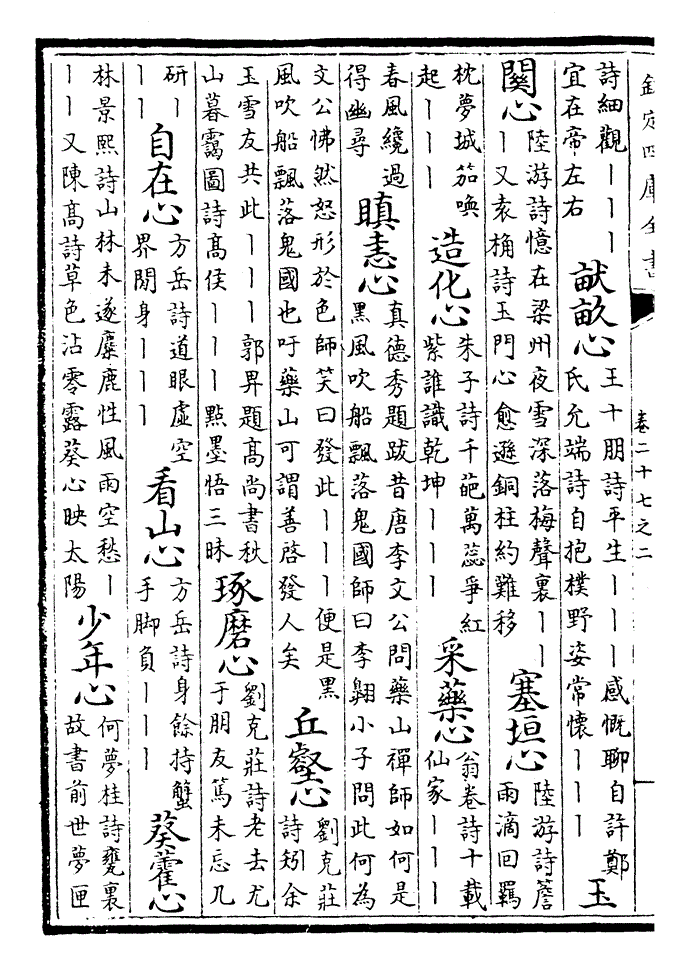 欽定四庫全書
卷二十七之二
詩細觀丨丨丨
宜在帝左右
畎畝心
王十朋詩平生丨丨丨感慨聊自許鄭
氏允端詩自抱樸野姿常懷丨丨丨
玉
關心
陸游詩憶在梁州夜雪深落梅聲裏丨丨
丨又袁桷詩玉門心愈遜銅柱約難移
塞垣心
陸游詩簷
雨滴回羇
枕夢城笳喚
起丨丨丨
造化心
朱子詩千葩萬蕊爭紅
紫誰識乾坤丨丨丨
采藥心
翁卷詩十載
仙家丨丨丨
春風纔過
得幽尋
瞋恚心
真德秀題跋昔唐李文公問藥山禪師如何是
黑風吹船飄落鬼國師曰李翺小子問此何為
文公怫然怒形於色師笑曰發此丨丨丨便是黑
風吹船飄落鬼國也吁藥山可謂善啓發人矣
丘壑心
劉克莊
詩矧余
玉雪友共此丨丨丨郭畀題髙尚書秋
山暮靄圖詩髙侯丨丨丨點墨悟三昧
琢磨心
劉克莊詩老去尤
于朋友篤未忘几
研丨
丨丨
自在心
方岳詩道眼虛空
界閒身丨丨丨
看山心
方岳詩身餘持蟹
手脚負丨丨丨
葵藿心
林景熙詩山林未遂麋鹿性風雨空愁丨
丨丨又陳髙詩草色沾零露葵心映太陽
少年心
何夢桂詩甕裏
故書前世夢匣